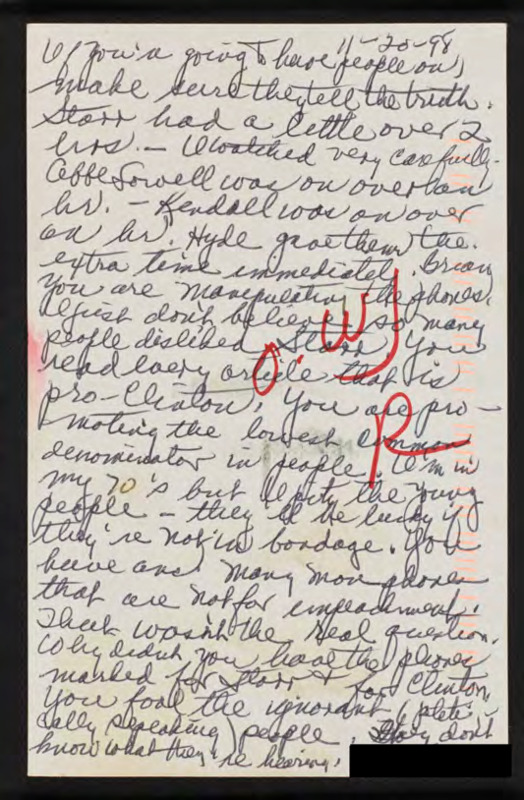 11-20-98
If you're going to have people on,
make sure they tell the truth.
Starr had a little over 2
hrs. - I watched very carefully.
Abbe Lowell was on over an
hr. - Kendall was on over
an hr. Hyde gave them the
extra time immediately. Brian
you are manipulating the phones.
I just don't believe that so many
people disliked Starr. You
read every article that is
pro-Clinton. You are pro-
moting the lowest common
denominator in people. I'm in
my 70's but I pity the young
people - they'll be lucky if
they're not in bondage. You
have many more phones
that are not for impeachment.
That wasn't the real question.
Why didn't you have the phones
marked for Starr + for Clinton.
You fool the ignorant (
cally speaking) people. They don't
know what they're hearing.
O.W.
R